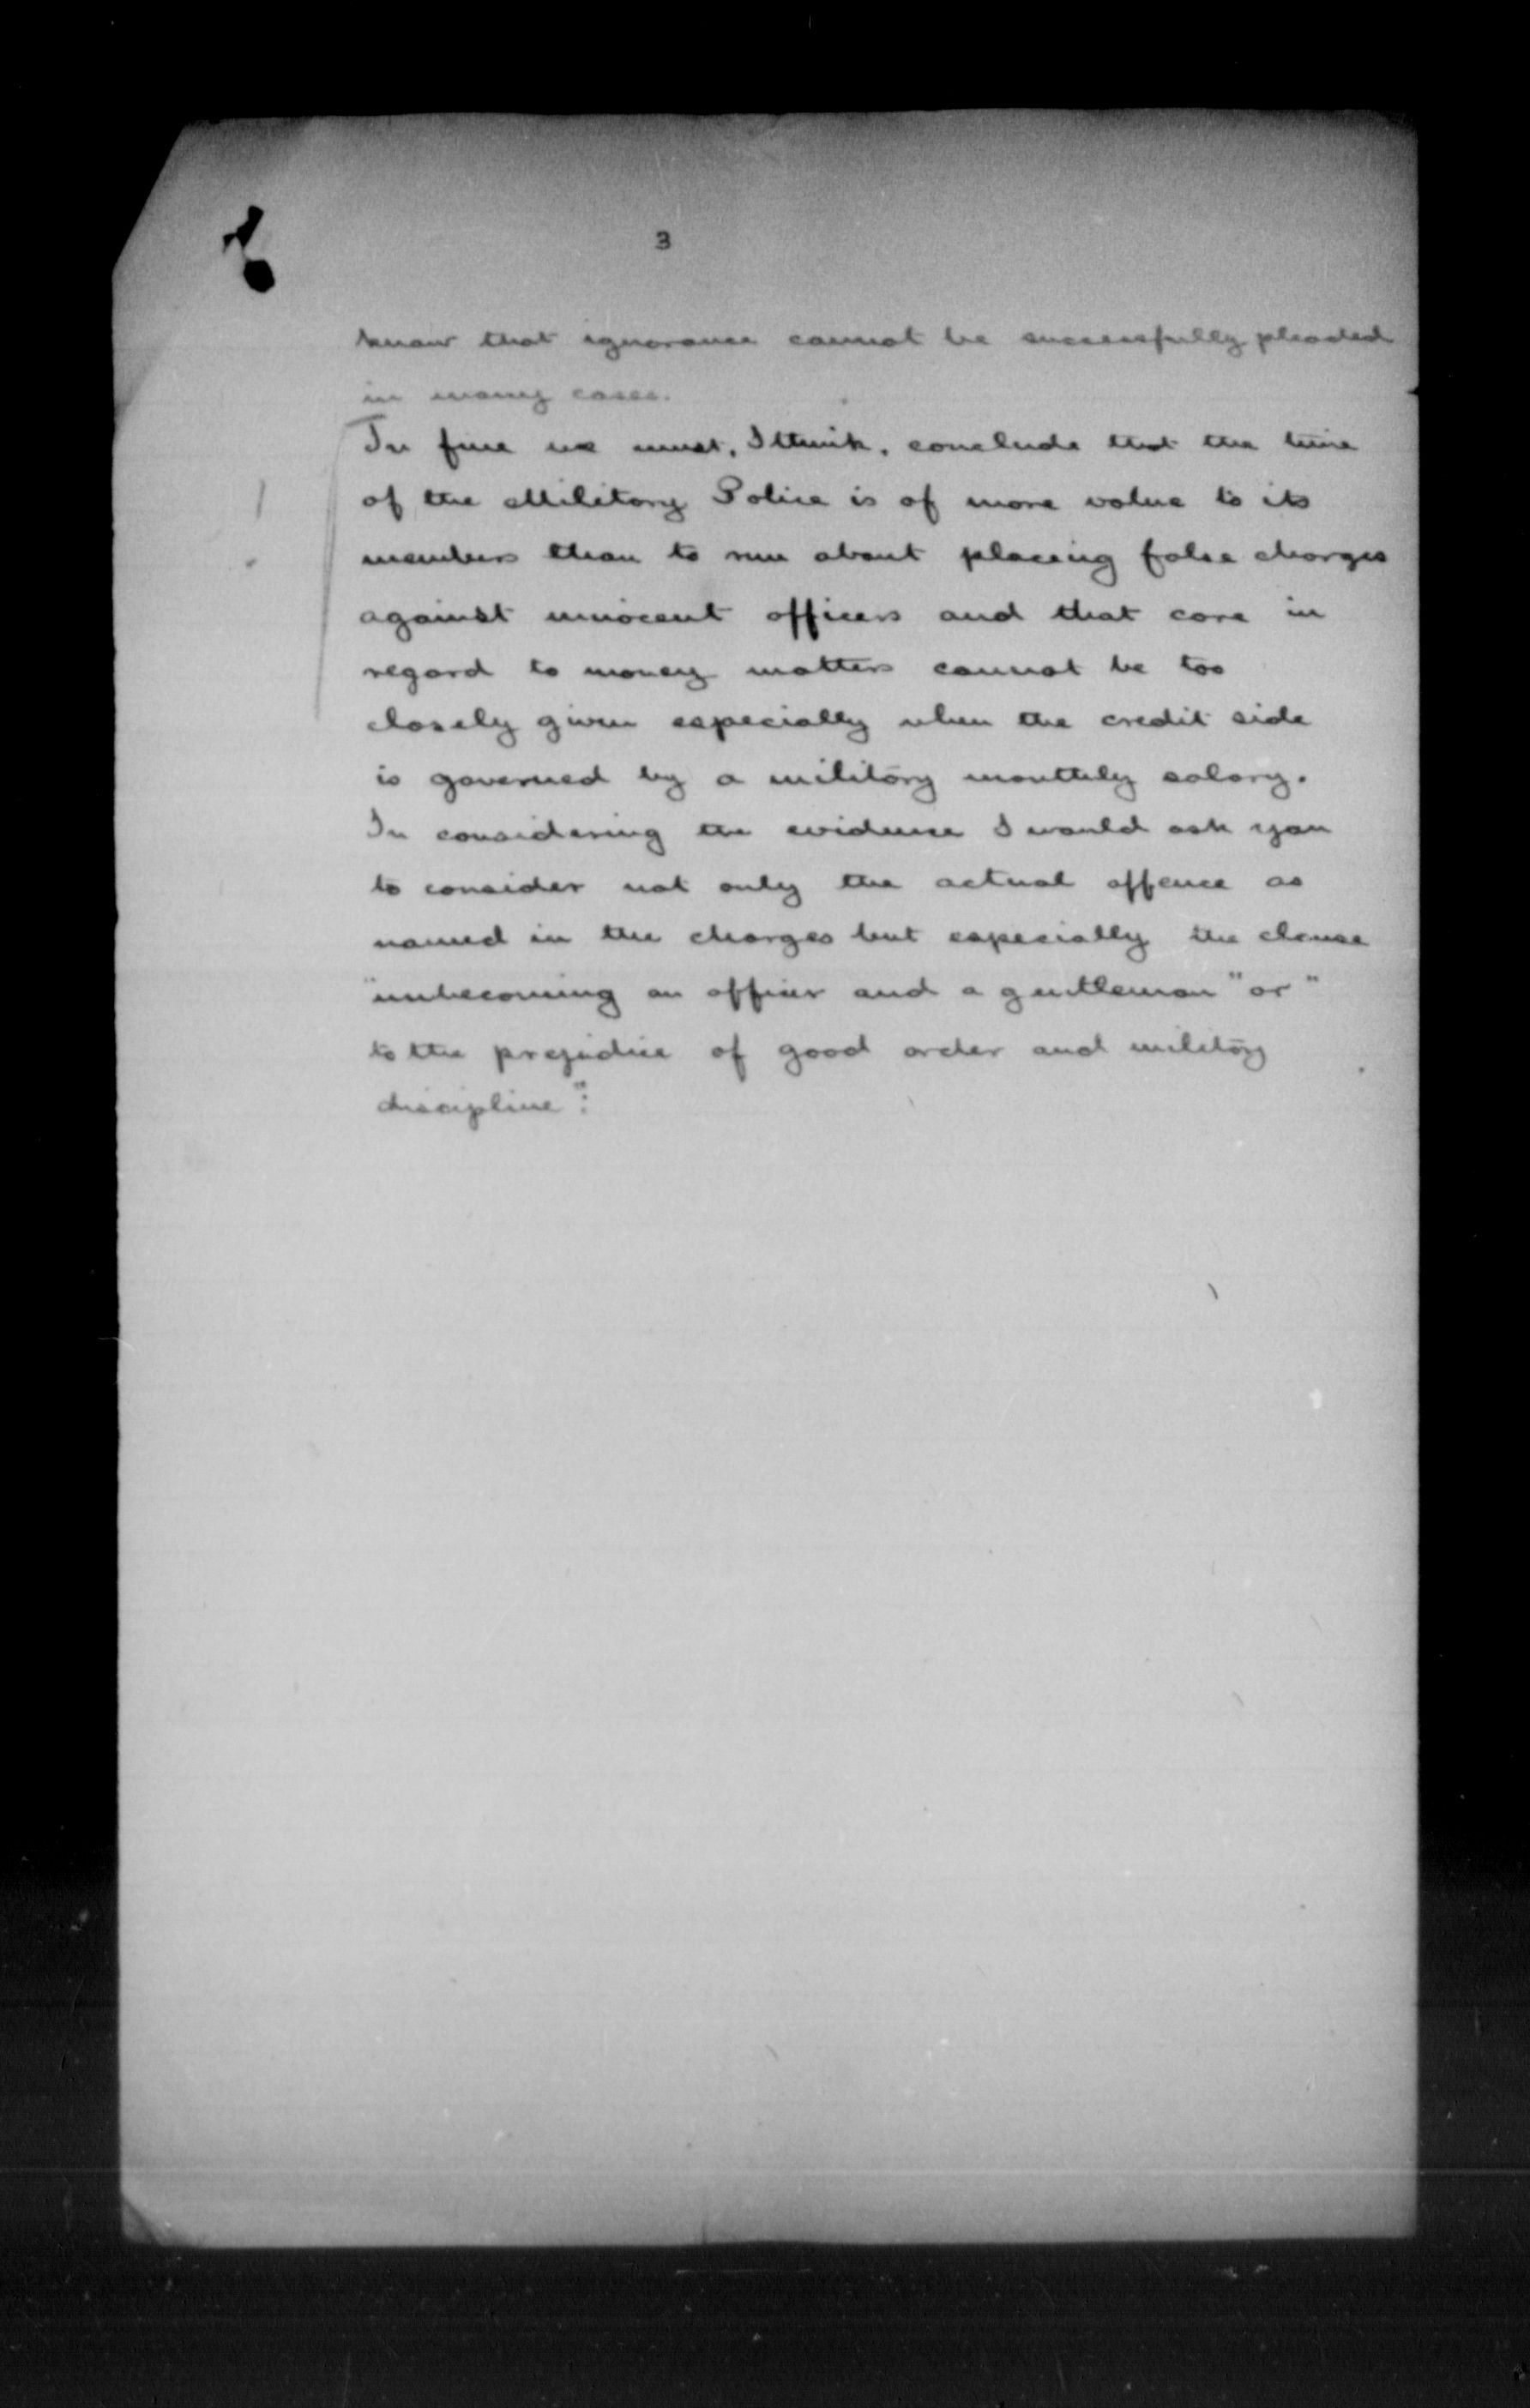 3
know that ignorance cannot be successfully pleaded
in many cases.
In fine we must, I think, conclude that the time
of the Military Police is of more value to its
members than to run about placing false charges
against innocent officers and that care in
regard to money matters cannot be too
closely given especially when the credit side
is governed by a military monthly salary.
In considering the evidence I would ask you
to consider not only the actual offence as
named in the charges but especially the clause
"unbecoming an officer and a gentleman" or "
to the prejudice of good order and military
discipline".